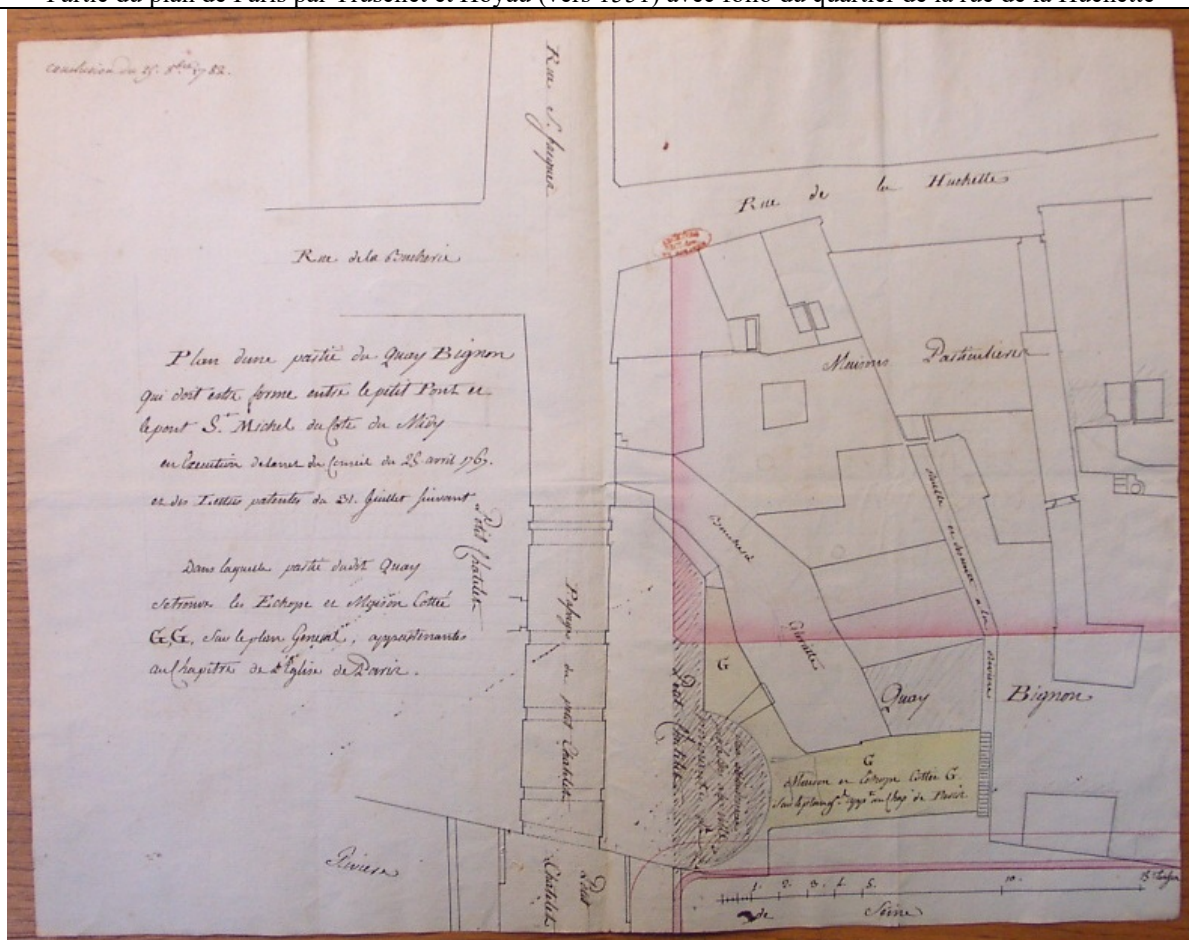 Partie du plan de Paris par Truschet et Hoyau (vers 1551) avec folio du quartier de la rue de la Huchette
Conclusion du 25. 8bre 1782.
Rue S. Jacques
Rue de la Huchette
Rue de la Bucherie
Plan dune partie du Quay Bignon
qui doit estre formé entre le petit Pont et
le pont St. Michel du Coté du Midy
en Execution de larret du Conseil du 25. avril 1767.
et des Lettres patentes du 31. Juillet suivant
Dans laquelle partie dudit Quay
se trouve les Echope et Maison Cottée
G,G, sur le plan General, appartenantes
au Chapitre de l'Eglise de Paris.
Maisons Particulieres
Petit Chatelet
Passage du petit Chatelet
Boucherie
Gloriette
ruelle en descente a la riviere
Petit Chatelet
G
Quay Bignon
G
Maison et Echope Cottée G.
sur le plan gal. appt. au Chap. de Paris
Riviere
Petit
Chatelet
1. 2. 3. 4. 5. 10.
de Seine